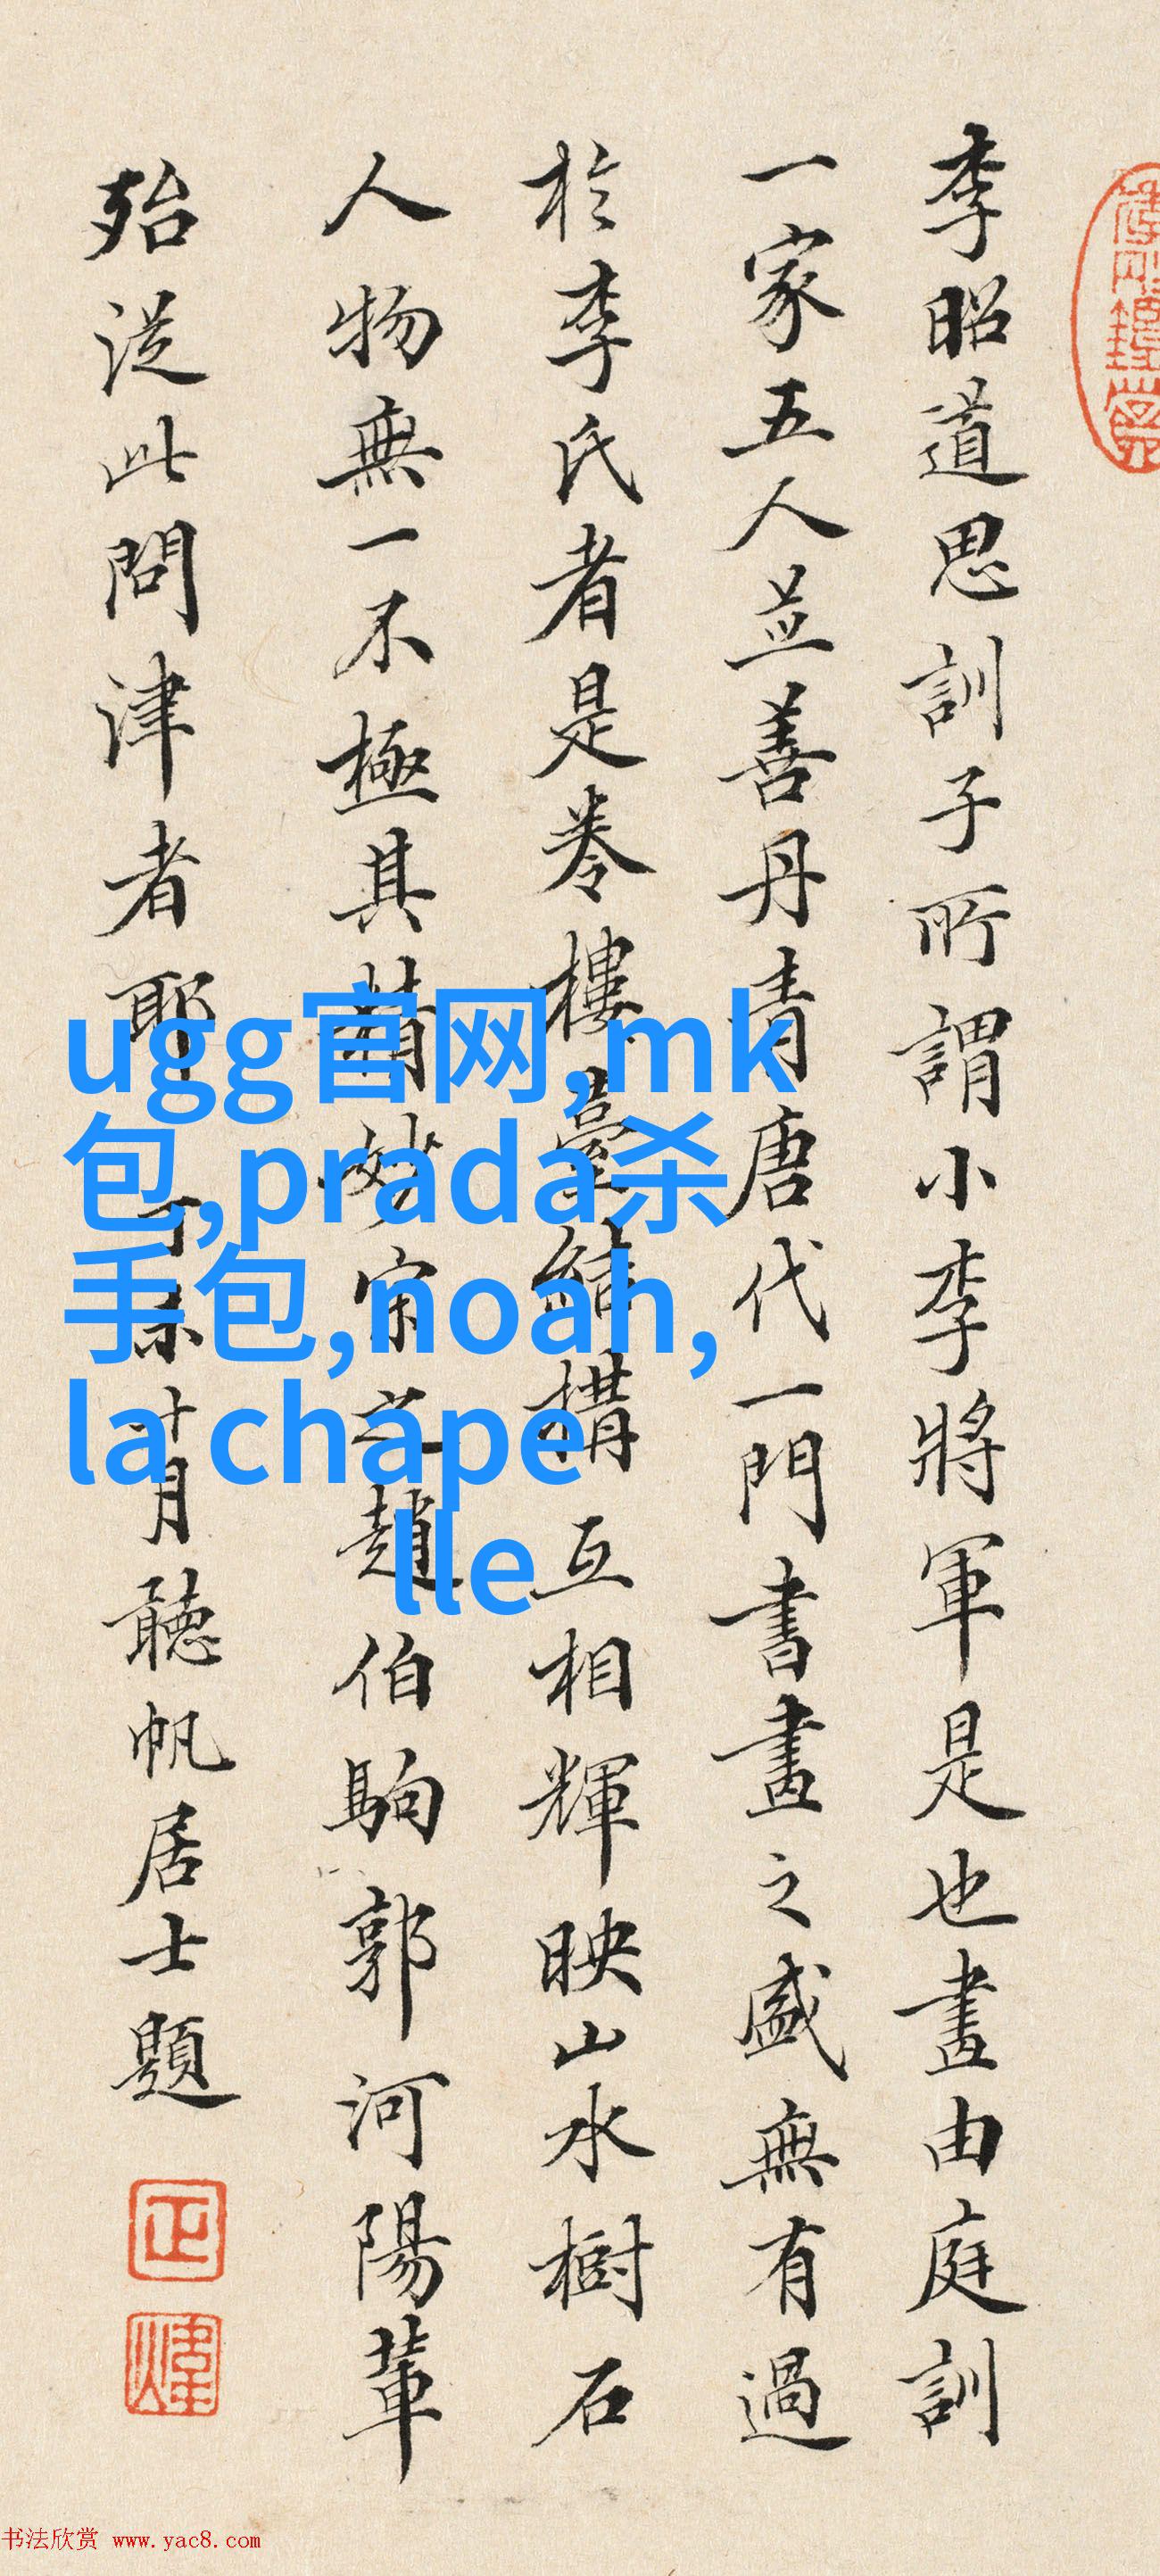 李昭道思訓子所謂小李將軍是也畫由庭訓
一家五人並善丹青唐代一門書畫之盛無有過
於李氏者是卷樓臺結構互相輝映山水樹石
人物無一不極其精妙宋之趙伯駒郭河陽輩
殆從此問津者耶 丁未廿月聽帆居士題
ugg官网,mk
包,prada杀
手包,noah,
la chape
lle
书法欣赏 www.yac8.com